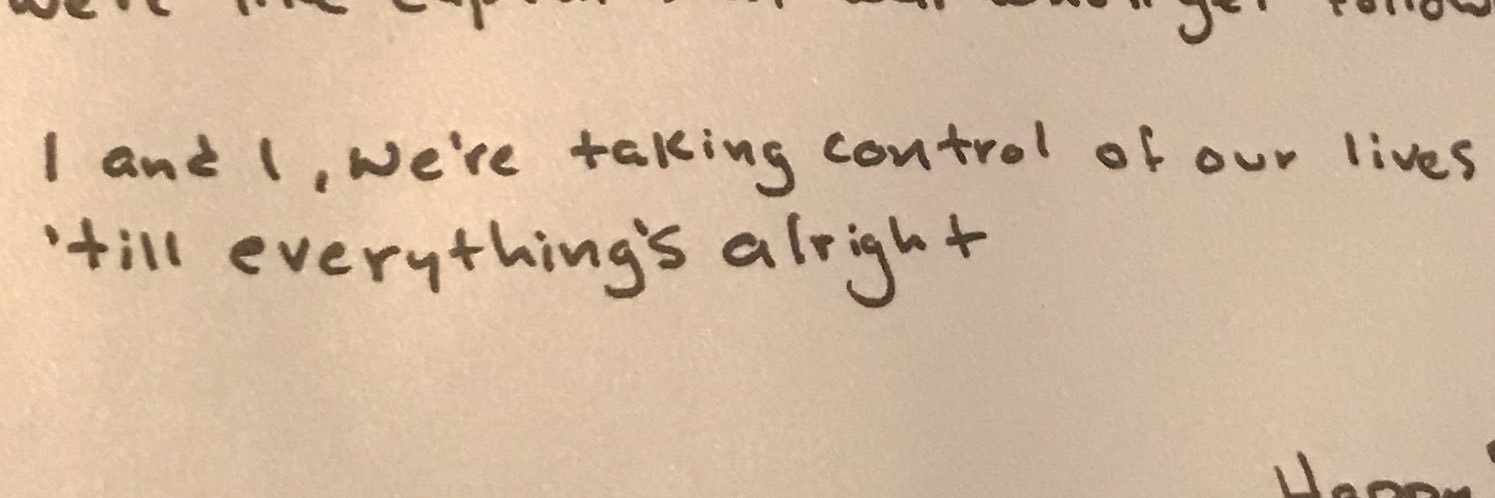 we're like
I and I, we're taking control of our lives
'till everything's alright
Happy